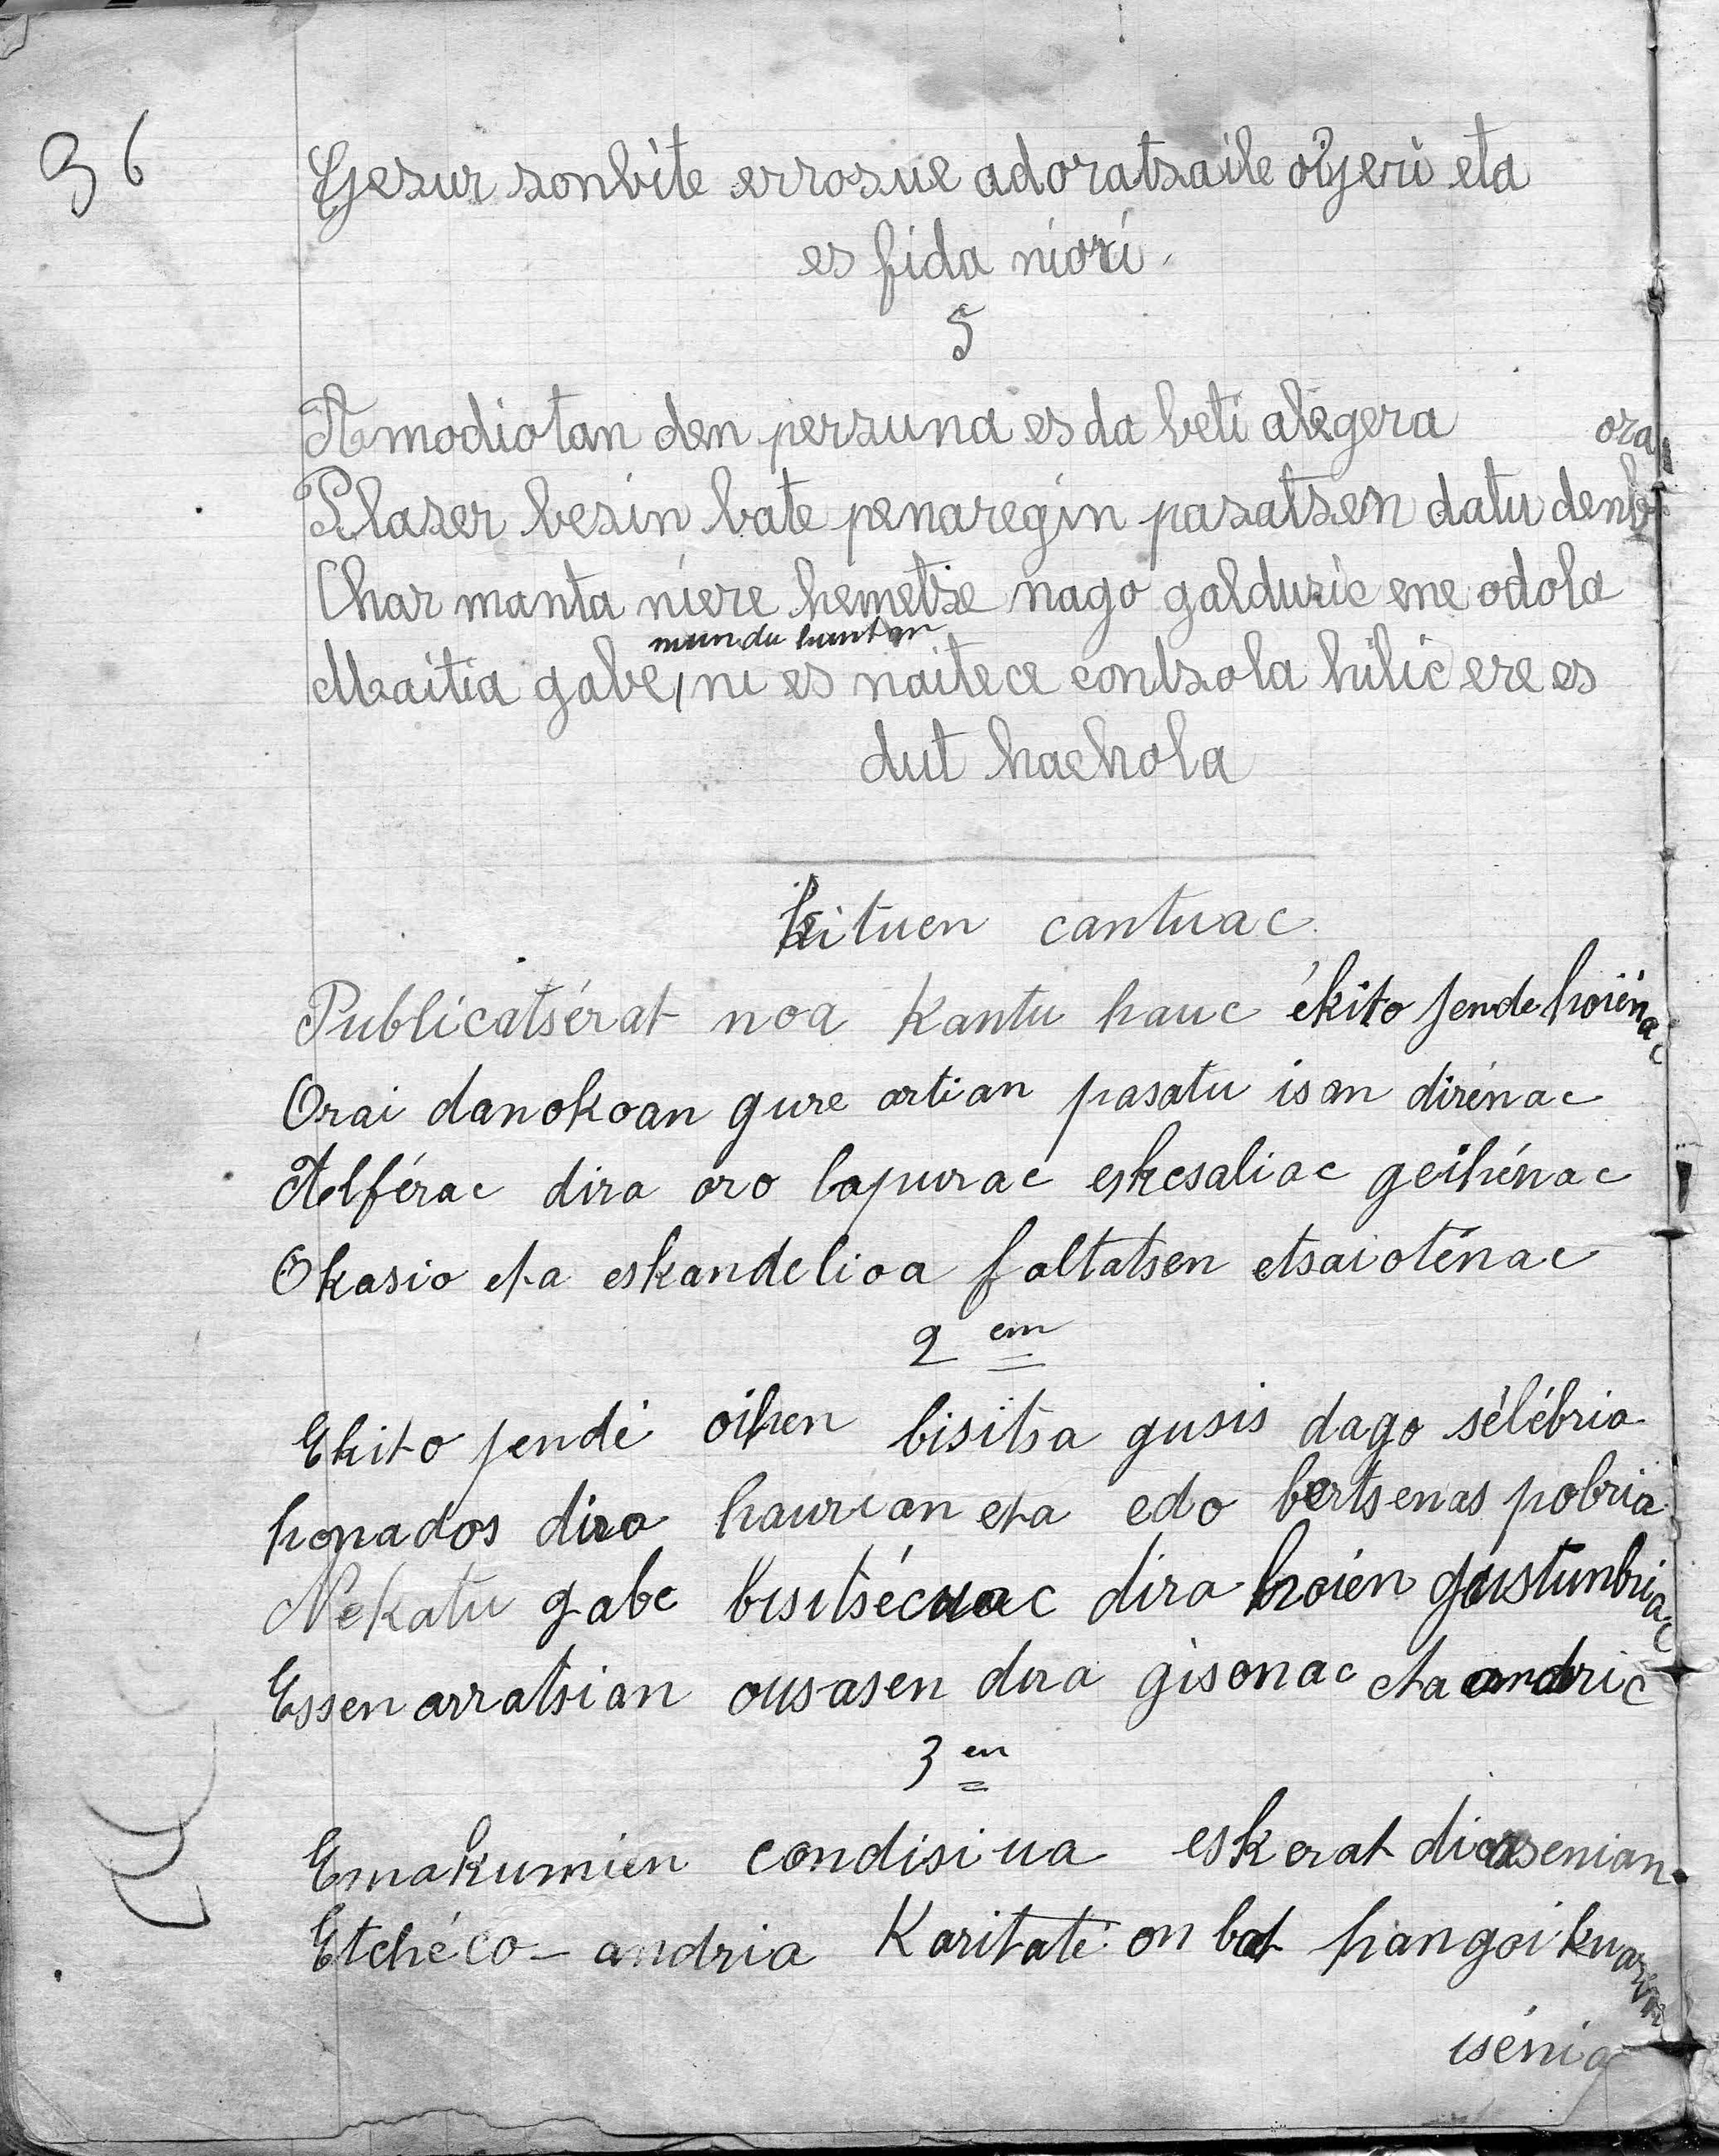 36
Gesur sonbite errosue adoratsaile oyeri eta
es fida niori.
5
Amodiotan den persuna es da beti alegera
ora
Plaser besin bate penaregin pasatsen datu denb
Charmanta niere hemetse nago galduric ene odola
mundu huntan
Maitia gabe, ni es naitece contsola hilic ere es
dut hachola
kituen cantuac
Publicatsérat noa kantu hauc ékito jende hoiénac
Orai danokoan gure artian pasatu isan dirénac
Alférac dira oro lapurac eskesaliac geihénac
Okasio eta eskandelioa faltatsen etsaioténac
2 em
Ekito jendé oihen bisitsa gusis dago sélébria
honados dira haurian eta edo bertsenas pobria
Nekatu gabe bisitsécuac dira hoién gustunbriac
Essen arratsian ousasen dira gisonac eta andric
3 en
Emakumien condisiua eskerat diasenian
Etchéco-andria Karitate on bat hangoikuaren
isénia